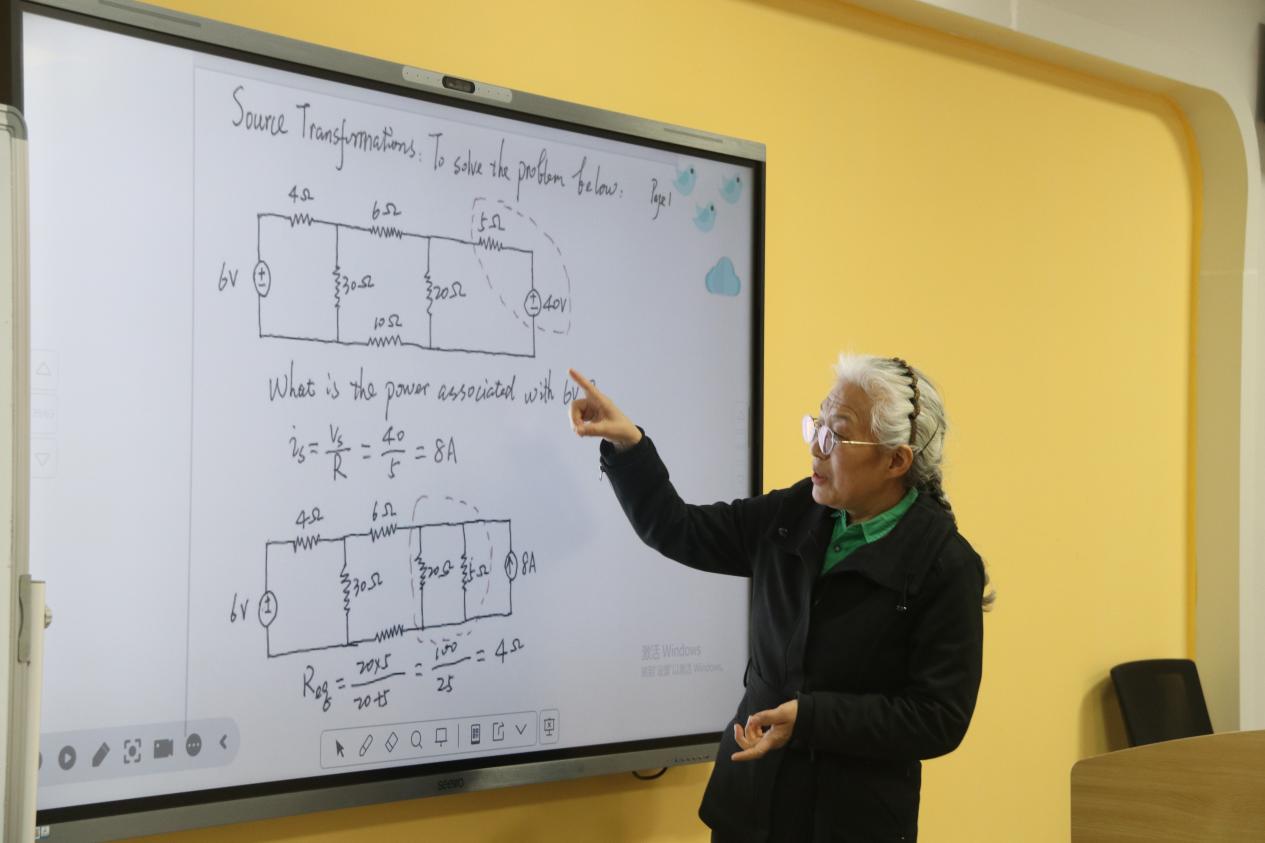 Source Transformations: To solve the problem below:
Page 1
4Ω
6Ω
5Ω
6V
30Ω
20Ω
40V
10Ω
What is the power associated with 6V?
is = Vs/R = 40/5 = 8A
4Ω
6Ω
6V
30Ω
20Ω
5Ω
8A
Req = 20×5/20+5 = 100/25 = 4Ω
激活 Windows
seewo